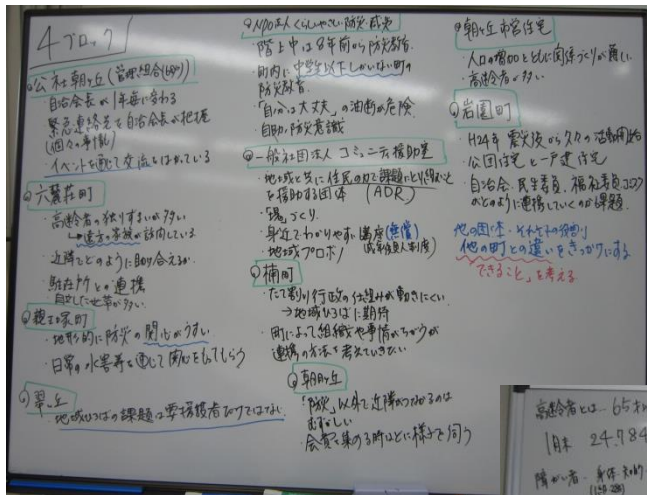 4ブロック
公社朝ヶ丘(管理組合
自治会長が1年毎に変わる
緊急連絡先を自治会長が把握
(個々の事情)
イベントを通じて交流をはかっている
六麓荘町
高齢者の独りずまいが多い
→遠方の家族が訪問している
近隣でどのように助け合えるか
駐在所との連携
自立した世帯が多い
親王塚町
地形的に防災の関心がうすい
日常の水害等を通じて関心をもってもらう
翠ヶ丘
地域ひろばの課題は要援護者だけではない
NPO法人くらしやさい防災・減災
階上中は8年前から防災教育
町内に中学生以下しかいない町の
防災教育
「自分は大丈夫」の油断が危険
自助・防災意識
一般社団法人 コミュニティ援助室
地域と共に住民の力で課題にとり組むこと
を援助する団体 (ADR)
「場」づくり
身近でわかりやすい講座(無償)
地域プロボノ (成年後見人制度)
楠町
たて割り行政の仕組みが動きにくい
→地域ひろばに期待
町によって組織や事情がちがうが
連携の方法を考えていきたい
朝日ヶ丘
「防災」以外で近隣がつながるのは
むずかしい
会費を集める時などに様子を伺う
朝ヶ丘市営住宅
人口の増加とともに関係づくりが難しい
高齢者が多い
岩園町
H24年 震災後から久々の活動開始
公団住宅と一戸建住宅
自治会・民生委員、福祉委員、コスモ
がどのように連携していくのが課題
他の団体・それぞれの役割
他の町との違いをきっかけにする
「できること」を考える
高齢者とは 65才
1月末 24.784
障がい者 身体